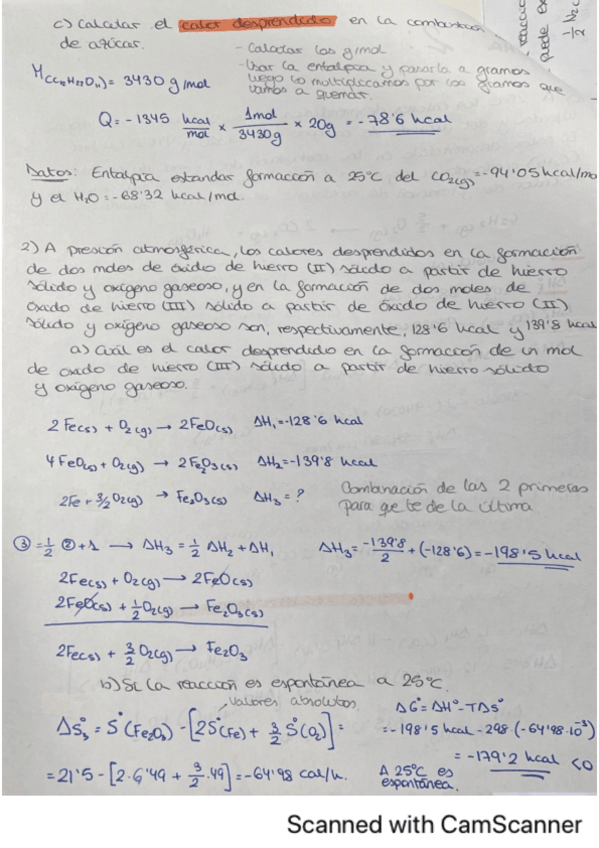 c) Calcular el calor desprendido en la combustión
de azúcar.
- Calcular los g/mol
- Usar la entalpía y pasarla a gramos
luego lo multiplicamos por los gramos que
vamos a quemar.
M(C12H22O11) = 3430 g/mol
Q = -1345 kcal/mol × 1mol/3430g × 20g = -78'6 kcal
reacció
puede ex
1/2 N2 c
Datos: Entalpía estandar formación a 25°C del CO2(g) = -94'05 kcal/mo
y el H2O = -68'32 kcal/mol.
2) A presión atmosférica, los calores desprendidos en la formación
de dos moles de óxido de hierro (II) sólido a partir de hierro
sólido y oxígeno gaseoso, y en la formación de dos moles de
óxido de hierro (III) sólido a partir de óxido de hierro (II)
sólido y oxígeno gaseoso son, respectivamente, 128'6 kcal y 139'8 kcal
a) Cuál es el calor desprendido en la formacción de un mol
de oxido de hierro (III) sólido a partir de hierro sólido
y oxígeno gaseoso.
2 Fe(s) + O2(g) → 2FeO(s) ΔH1 = -128'6 kcal
4 FeO(s) + O2(g) → 2 Fe2O3(s) ΔH2 = -139'8 kcal
2Fe + 3/2 O2(g) → Fe2O3(s) ΔH3 = ?
Combinación de las 2 primeras
para qe te de la última
③ = 1/2 ② + 1 → ΔH3 = 1/2 ΔH2 + ΔH1 ΔH3 = -139'8/2 + (-128'6) = -198'5 kcal
2Fe(s) + O2(g) → 2FeO(s)
2FeO(s) + 1/2 O2(g) → Fe2O3(s)
2Fe(s) + 3/2 O2(g) → Fe2O3
b) Si la reacción es espontánea a 25°C.
valores absolutos
ΔS°3 = S°(Fe2O3) - [2S°(Fe) + 3/2 S°(O2)] =
= 21'5 - [2·6'49 + 3/2·49] = -64'98 cal/k.
ΔG° = ΔH° - TΔS°
= -198'5 kcal - 298·(-64'98·10^-3)
= -179'2 kcal < 0
A 25°C es
espontánea.
Scanned with CamScanner